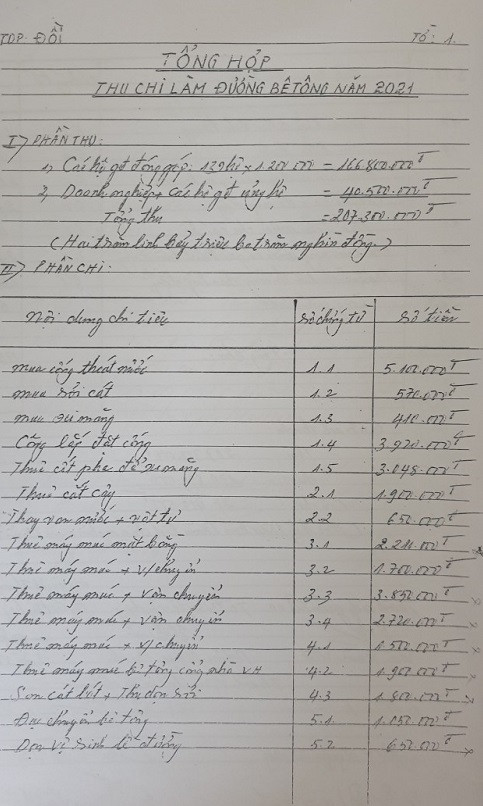 TDP. ĐỒI TỔ: 1.
TỔNG HỢP
THU CHI LÀM ĐƯỜNG BÊ TÔNG NĂM 2021
I) PHẦN THU:
1, Các hộ gđ đóng góp: 139 hộ x 1.200.000 = 166.800.000đ
2, Doanh nghiệp + các hộ gđ ủng hộ = 40.500.000đ
Tổng thu = 207.300.000đ
(Hai trăm linh bảy triệu ba trăm nghìn đồng.)
II) PHẦN CHI:
Nội dung chi tiêu Số chứng từ Số tiền
mua cống thoát nước 1.1 5.100.000đ
mua sỏi cát 1.2 570.000đ
mua xi măng 1.3 410.000đ
Công lắp đặt cống 1.4 3.920.000đ
Thuê cốt pha đổ xi măng 1.5 3.048.000đ
Thuê cắt cây 2.1 1.900.000đ
Thay van nước + vật tư 2.2 650.000đ
Thuê máy múc mặt bằng 3.1 2.210.000đ
Thuê máy múc + v/chuyển 3.2 1.700.000đ
Thuê máy múc + vận chuyển 3.3 3.850.000đ x
Thuê máy múc + vận chuyển 3.4 2.720.000đ x
Thuê máy múc + v/chuyển 4.1 1.500.000đ x
Thuê máy múc bê tông cổng nhà VH 4.2 1.900.000đ x
San cát lót + Thu dọn sỏi 4.3 1.800.000đ x
chuyển bê tông 5.1 1.050.000đ
Dọn vệ sinh lề đường 5.2 650.000đ x